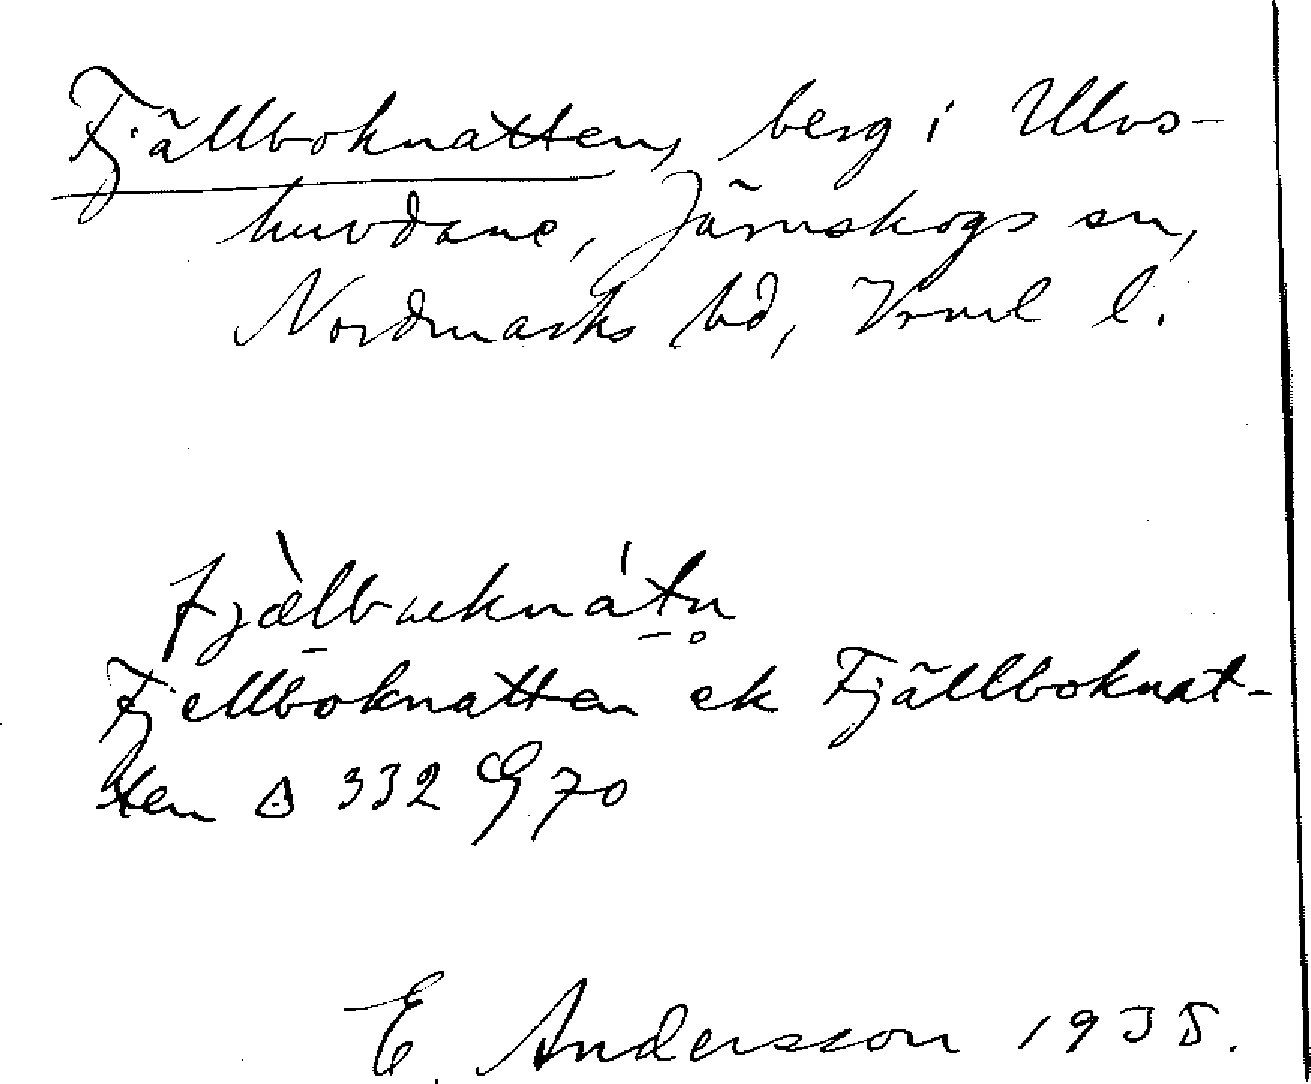 Fjällboknatten, berg i Ulvs-
huvdane, Järnskogs sn,
Nordmarks hd, Vrml l.
fjæ̀lbuknátn̥
Fjellboknatten ek Fjällboknat-
ten Δ 332 G 70
E. Andersson 1935.